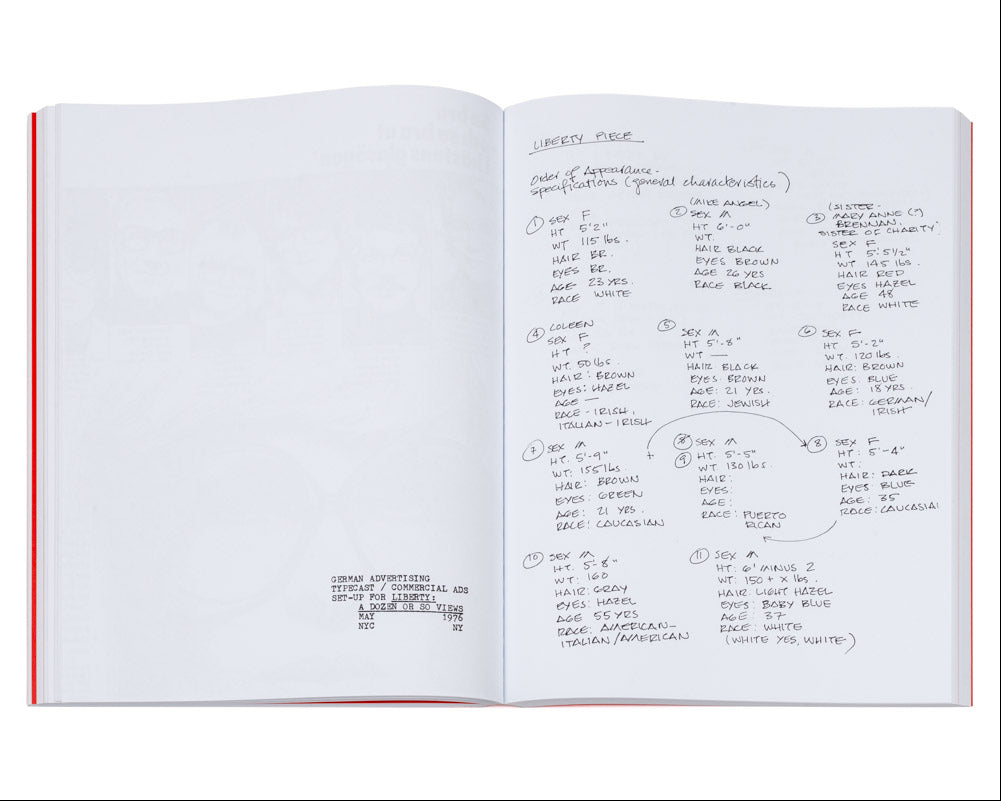 GERMAN ADVERTISING
TYPECAST / COMMERCIAL ADS
SET-UP FOR LIBERTY:
A DOZEN OR SO VIEWS
MAY 1976
NYC NY
LIBERTY PIECE
Order of Appearance-
specifications (general characteristics)
① SEX F
HT 5'2"
WT 115 lbs.
HAIR BR.
EYES BR.
AGE 23 YRS.
RACE WHITE
(MIKE ANGEL)
② SEX M
HT 6'-0"
WT.
HAIR BLACK
EYES BROWN
AGE 26 YRS
RACE BLACK
(SISTER-
③ MARY ANNE (?)
BRENNAN,
SISTER OF CHARITY)
SEX F
HT 5'-5 1/2"
WT 145 lbs.
HAIR RED
EYES HAZEL
AGE 48
RACE WHITE
④ COLEEN
SEX F
HT ?
WT. 50 lbs.
HAIR: BROWN
EYES: HAZEL
AGE —
RACE - IRISH,
ITALIAN - IRISH
⑤ SEX M
HT 5'-8"
WT —
HAIR: BLACK
EYES: BROWN
AGE: 21 YRS.
RACE: JEWISH
⑥ SEX F
HT 5'-2"
WT. 120 lbs.
HAIR: BROWN
EYES: BLUE
AGE: 18 YRS.
RACE: GERMAN/
IRISH
⑦ SEX M
HT. 5'-9"
WT: 155 lbs.
HAIR: BROWN
EYES: GREEN
AGE: 21 YRS.
RACE: CAUCASIAN
⑧ SEX M
⑨ HT. 5'-5"
WT. 130 lbs.
HAIR:
EYES:
AGE:
RACE: PUERTO
RICAN
⑧ SEX F
HT: 5'-4"
WT:
HAIR: DARK
EYES: BLUE
AGE: 35
RACE: CAUCASIAN
⑩ SEX M
HT. 5-8"
WT: 160
HAIR: GRAY
EYES: HAZEL
AGE 55 YRS
RACE: AMERICAN-
ITALIAN/AMERICAN
⑪ SEX M
HT: 6' MINUS 2
WT: 150 + X lbs.
HAIR: LIGHT HAZEL
EYES: BABY BLUE
AGE: 37
RACE: WHITE
(WHITE YES, WHITE.)